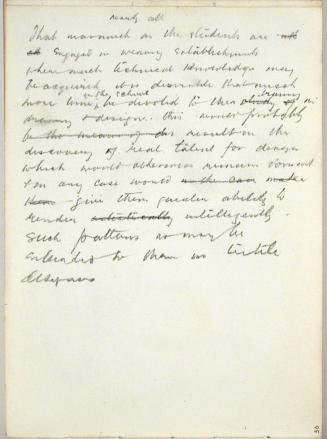 nearly all
That inasmuch as the students are
engaged in weaving establishments
where much technical knowledge may
be acquired it is desirable that much
in the school
more time be devoted to their training in
drawing & design. This would probably
be the means of result in the
discovery of real talent for design
which would otherwise remain dormant
& in any case would in the case make
them give them greater ability to
render artistically intelligently
such patterns as may be
entrusted to them in textile
designs
50